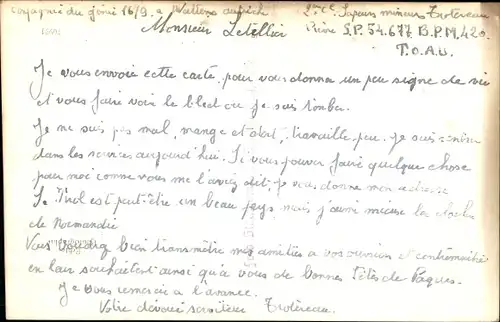 Compagnie du génie 16/9. a Wattens autrich
2ème Cl. Sapeur mineur Trotereau
Monsieur Letellier
Prière S.P. 54.677 B.P.M. 420.
T.O.A.U.
Je vous envoie cette carte, pour vous donner un peu signe de vie
et vous faire voir le bled ou je suis tomber.
Je me suis pas mal, mange et dort, travaille peu. Je suis rentrer
dans les services aujourd'hui. Si vous pouver faire quelque chose
pour moi comme vous me l'aviez dit. Je vous donne mon adresse
Le Tirol est peut-être un beau pays mais j'aime mieux la
de Normandie
Vous voudrez bien transmêtre mes amitiés a vos ouvriers et contremaitre
en leur souhaitest ainsi qu'a vous de bonnes Fêtes de Paques.
Je vous remercie a l'avance.
Votre dévoué serviteur Trotereau.